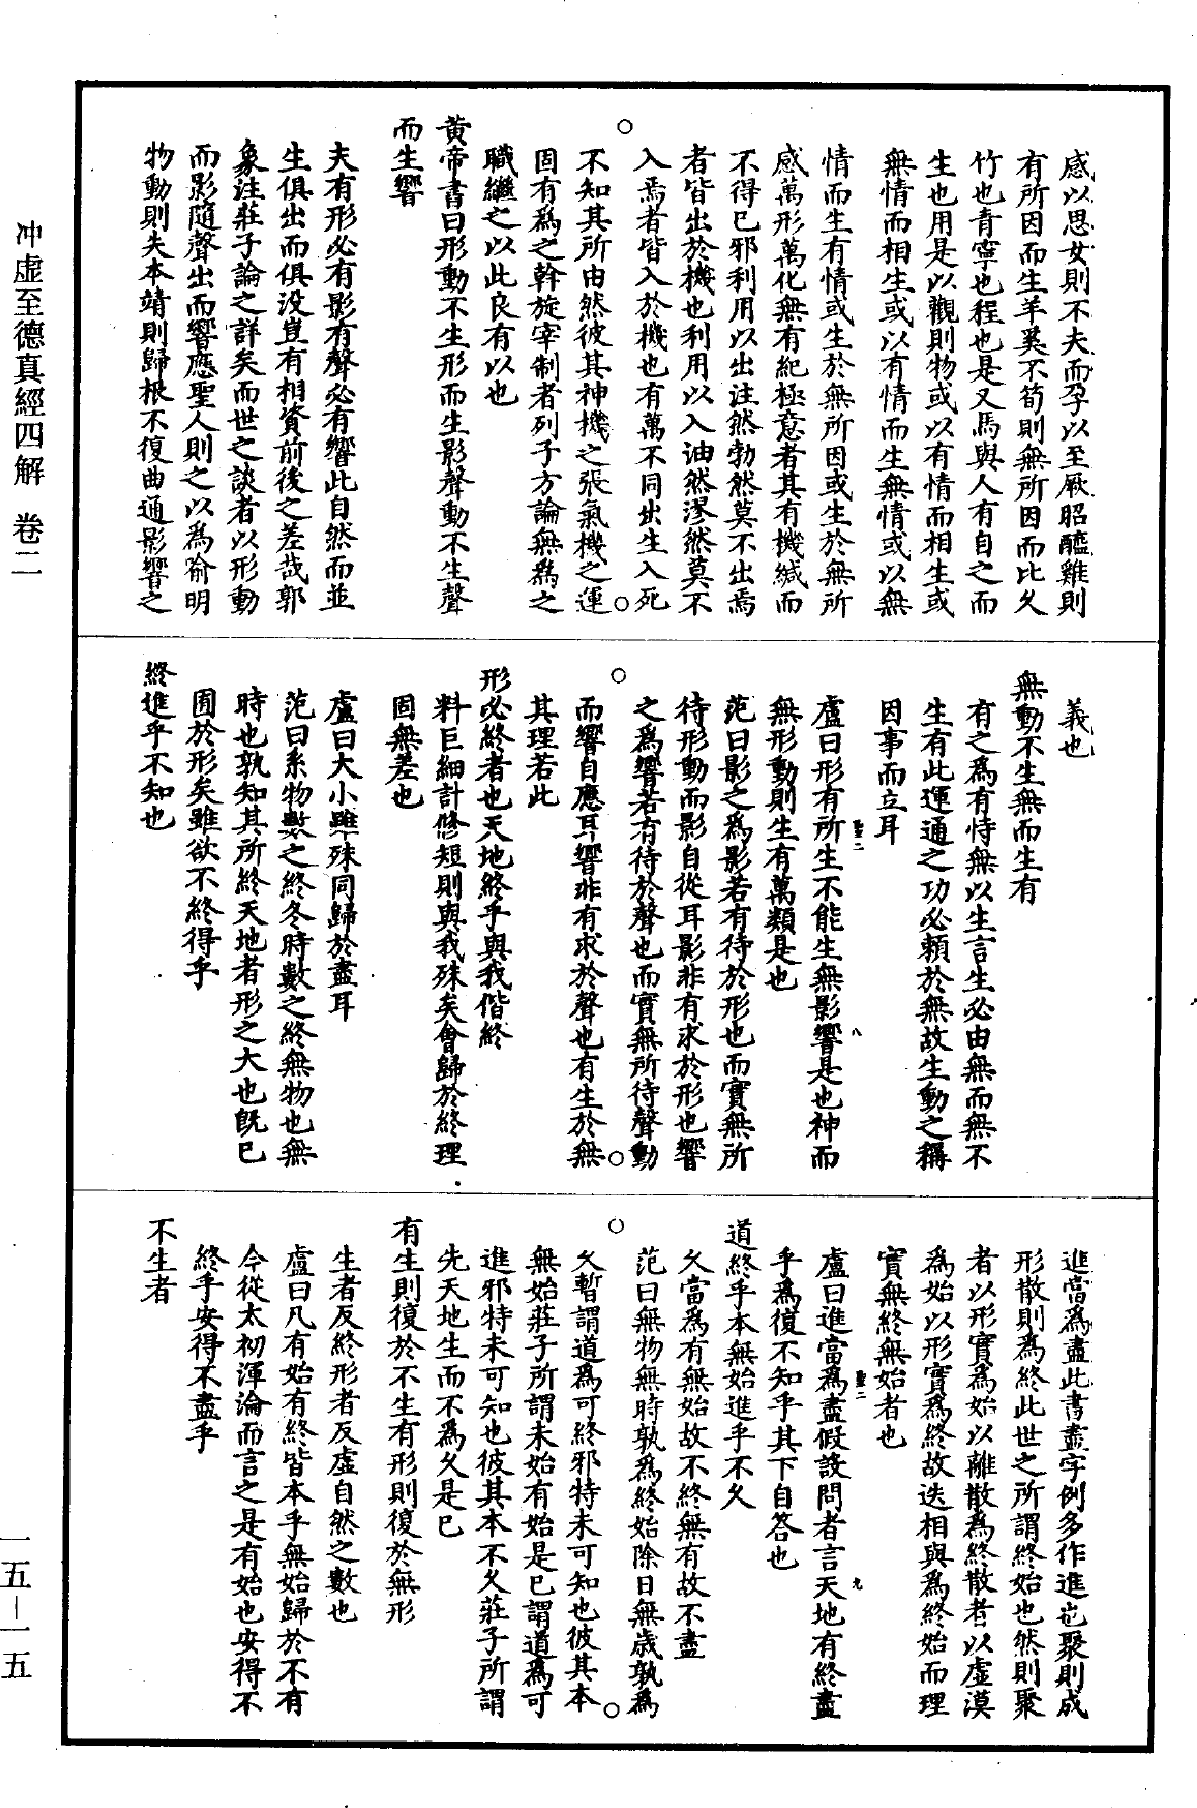 冲虛至德真經四解　卷二
感以思女則不夫而孕以至厥昭醯雞則
有所因而生羊奚不筍則無所因而比久
竹也青寧也程也是又馬與人有自之而
生也用是以觀則物或以有情而相生或
無情而相生或以有情而生無情或以無
情而生有情或生於無所因或生於無所
感萬形萬化無有紀極意者其有機緘而
不得已邪利用以出注然勃然莫不出焉
者皆出於機也利用以入油然漻然莫不
入焉者皆入於機也有萬不同出生入死
不知其所由然彼其神機之張氣機之運
固有為之幹旋宰制者列子方論無為之
職繼之以此良有以也
黃帝書曰形動不生形而生影聲動不生聲
而生響
夫有形必有影有聲必有響此自然而並
生俱出而俱沒豈有相資前後之差哉郭
象注莊子論之詳矣而世之談者以形動
而影隨聲出而響應聖人則之以為喻明
物動則失本靖則歸根不復曲通影響之
義也
無動不生無而生有
有之為有恃無以生言生必由無而無不
生有此運通之功必賴於無故生動之稱
因事而立耳
盧曰形有所生不能生無影響是也神而
無形動則生有萬類是也
范曰影之為影若有待於形也而實無所
待形動而影自從耳影非有求於形也響
之為響若有待於聲也而實無所待聲動
而響自應耳響非有求於聲也有生於無
其理若此
形必終者也天地終乎與我偕終
料巨細計修短則與我殊矣會歸於終理
固無差也
盧曰大小雖殊同歸於盡耳
范曰系物數之終冬時數之終無物也無
時也孰知其所終天地者形之大也既已
囿於形矣雖欲不終得乎
終進乎不知也
進當為盡此書盡字例多作進也聚則成
形散則為終此世之所謂終始也然則聚
者以形實為始以離散為終散者以虛漠
為始以形實為終故迭相與為終始而理
實無終無始者也
盧曰進當為盡假設問者言天地有終盡
乎為復不知乎其下自答也
道終乎本無始進乎不久
久當為有無始故不終無有故不盡
范曰無物無時孰為終始除日無歲孰為
久暫謂道為可終邪特未可知也彼其本
無始莊子所謂未始有始是已謂道為可
進邪特未可知也彼其本不久莊子所謂
先天地生而不為久是已
有生則復於不生有形則復於無形
生者反終形者反虛自然之數也
盧曰凡有始有終皆本乎無始歸於不有
今從太初渾淪而言之是有始也安得不
終乎安得不盡乎
不生者
一五－一五